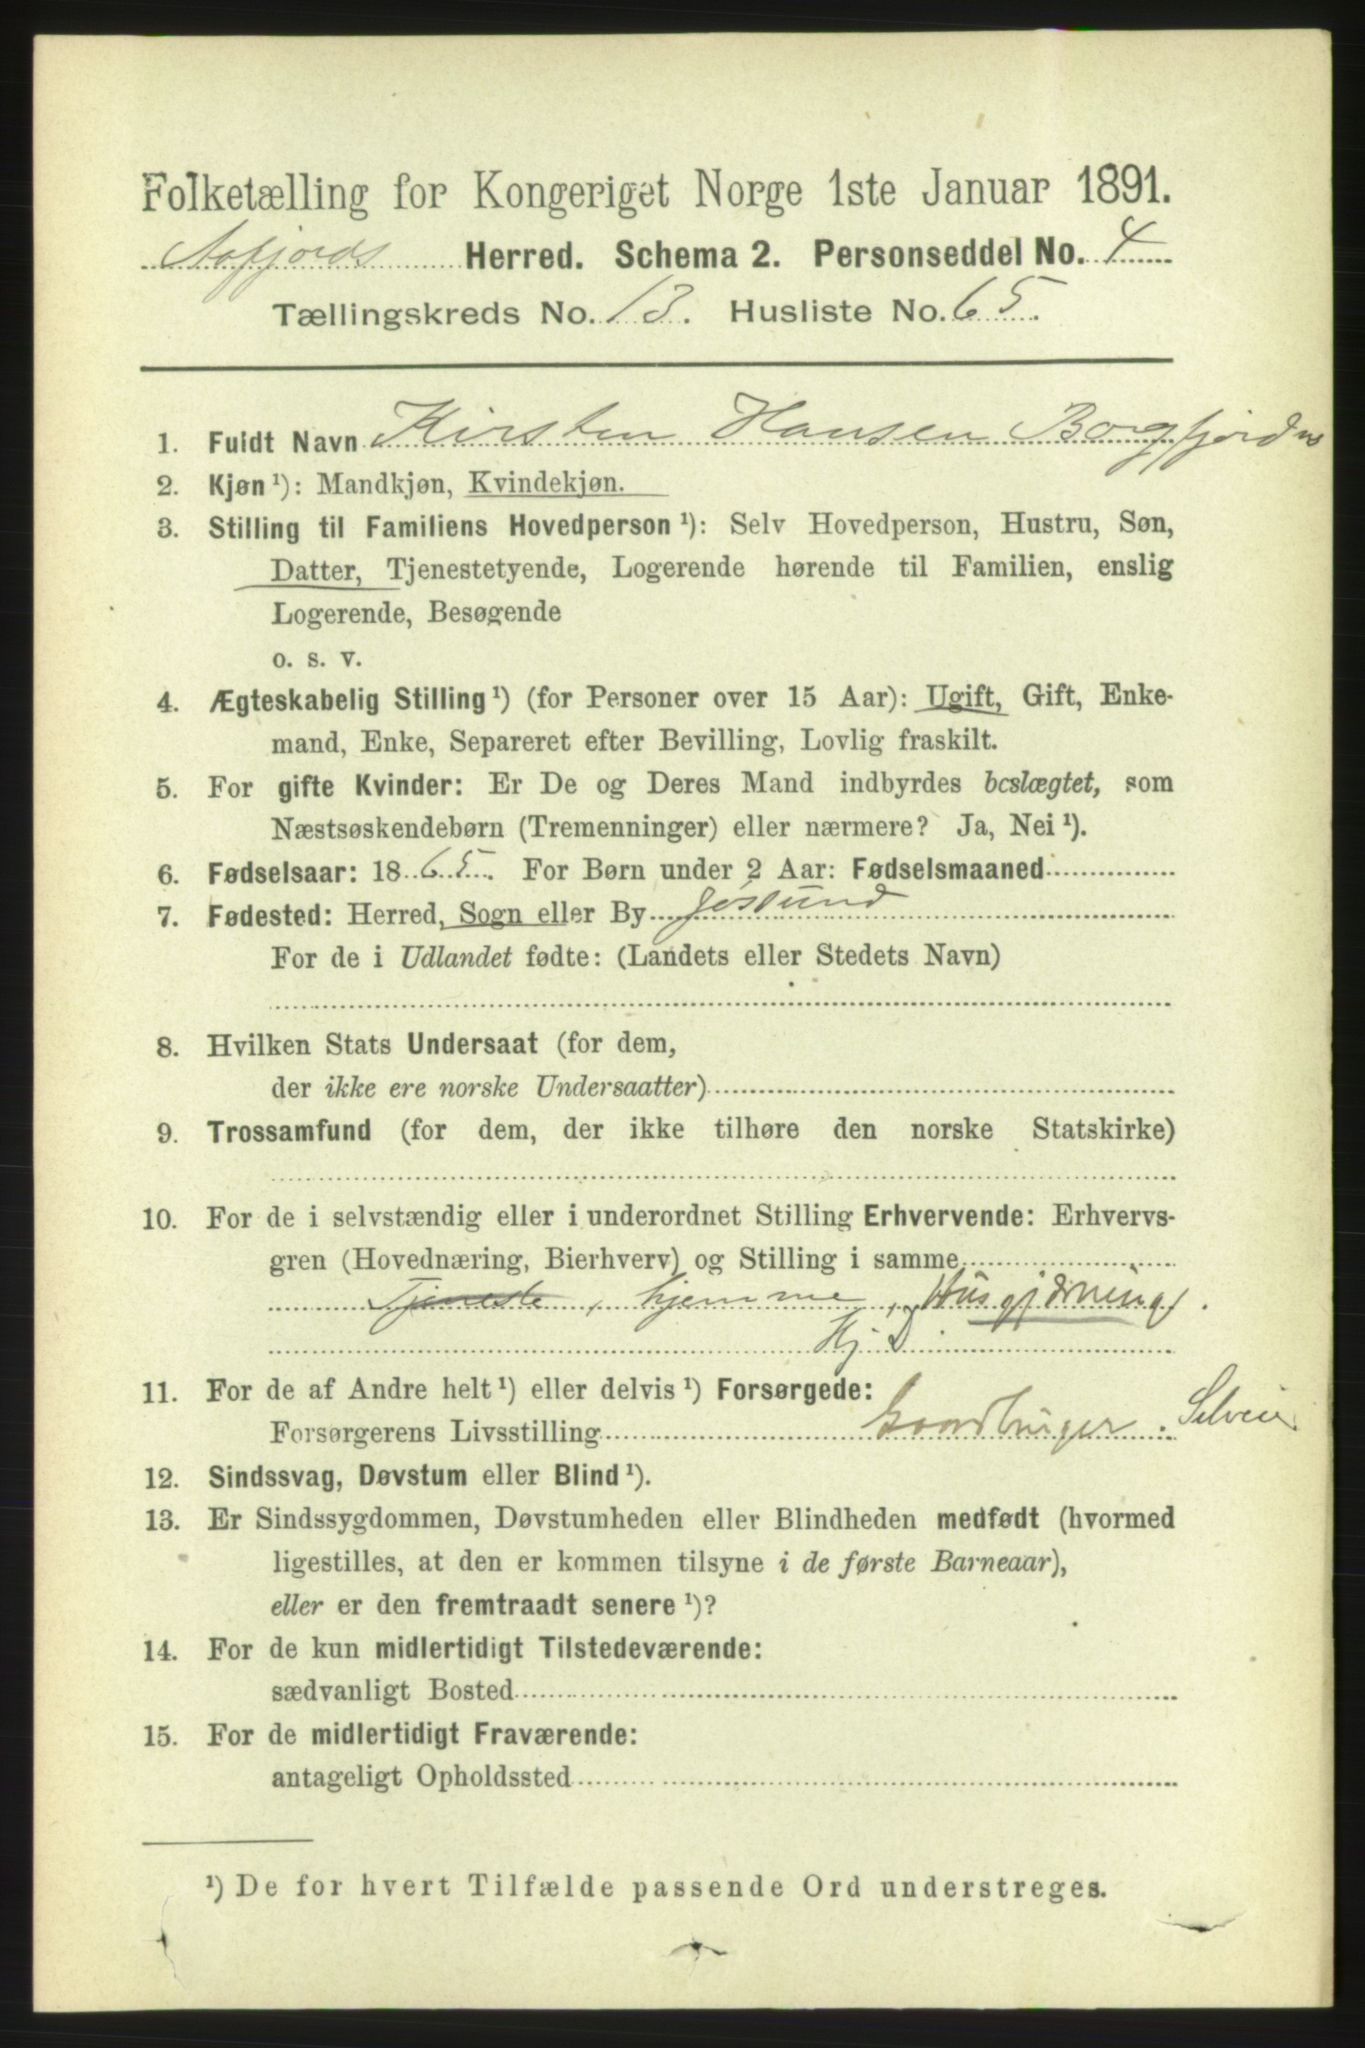 Folketælling for Kongeriget Norge 1ste Januar 1891.
Aafjords Herred. Schema 2. Personseddel No. 4
Tællingskreds No. 13. Husliste No. 65.
1. Fuldt Navn Kirsten Hansen Borgfjorden
2. Kjøn ¹): Mandkjøn, Kvindekjøn.
3. Stilling til Familiens Hovedperson ¹): Selv Hovedperson, Hustru, Søn,
Datter, Tjenestetyende, Logerende hørende til Familien, enslig
Logerende, Besøgende
o. s. v.
4. Ægteskabelig Stilling ¹) (for Personer over 15 Aar): Ugift, Gift, Enke-
mand, Enke, Separeret efter Bevilling, Lovlig fraskilt.
5. For gifte Kvinder: Er De og Deres Mand indbyrdes beslægtet, som
Næstsøskendebørn (Tremenninger) eller nærmere? Ja, Nei ¹).
6. Fødselsaar: 1865. For Børn under 2 Aar: Fødselsmaaned
7. Fødested: Herred, Sogn eller By Jøssund
For de i Udlandet fødte: (Landets eller Stedets Navn)
8. Hvilken Stats Undersaat (for dem,
der ikke ere norske Undersaatter)
9. Trossamfund (for dem, der ikke tilhøre den norske Statskirke)
10. For de i selvstændig eller i underordnet Stilling Erhvervende: Erhvervs-
gren (Hovednæring, Bierhverv) og Stilling i samme
Tjeneste, hjemme, Husgjerning.
Hj. D.
11. For de af Andre helt ¹) eller delvis ¹) Forsørgede:
Forsørgerens Livsstilling Gaardbruger. Selveier
12. Sindssvag, Døvstum eller Blind ¹).
13. Er Sindssygdommen, Døvstumheden eller Blindheden medfødt (hvormed
ligestilles, at den er kommen tilsyne i de første Barneaar),
eller er den fremtraadt senere ¹)?
14. For de kun midlertidigt Tilstedeværende:
sædvanligt Bosted
15. For de midlertidigt Fraværende:
antageligt Opholdssted
¹) De for hvert Tilfælde passende Ord understreges.